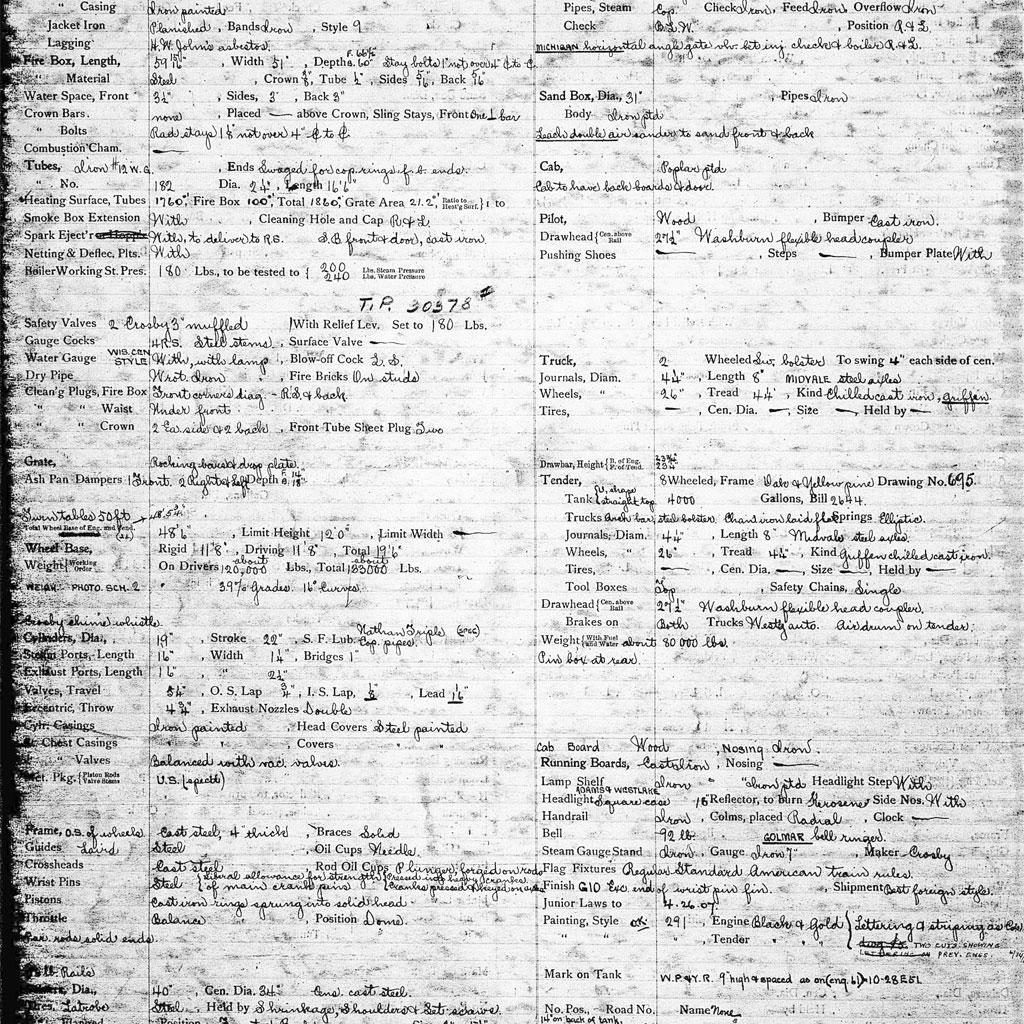 Casing Iron painted
Jacket Iron Planished, Bands Iron, Style 9
Lagging H.W. John's asbestos.
Fire Box, Length, 59 , Width 51", Depth Stay bolts 1" not over 4" C to C.
Material Steel , Crown 3/8, Tube 1/2, Sides 5/16, Back 5/16
Water Space, Front 3½" , Sides, 3" , Back 3"
Crown Bars. none , Placed — above Crown, Sling Stays, Front One L bar
" Bolts Rad stays 1⅛" not over 4" C to C.
Combustion Cham. —
Tubes, Iron #12 W.G. , Ends Swaged for cop. rings f.b. ends.
" No. 182 Dia. 2¼", Length 16'6"
Heating Surface, Tubes 1760, Fire Box 100, Total 1860, Grate Area 21.2, Ratio to Heat'g Surf. } 1 to
Smoke Box Extension With , Cleaning Hole and Cap R & L.
Spark Eject'r With, to deliver to R.S. S.B. front & door, cast iron.
Netting & Deflec. Plts. With
Boiler Working St. Pres. 180 Lbs., to be tested to { 200 Lbs. Steam Pressure
240 Lbs. Water Pressure
T.P. 30378
Safety Valves 2 Crosby 3" muffled 1 With Relief Lev. Set to 180 Lbs.
Gauge Cocks 4 R.S. Steel stems, Surface Valve —
Water Gauge WIS. CEN. STYLE With, with lamp, Blow-off Cock L.S.
Dry Pipe Wrot. Iron , Fire Bricks On studs
Clean'g Plugs, Fire Box Front corners diag. - R.S. & back
" " Waist Under front.
" " Crown 2 Ea. side & 2 back, Front Tube Sheet Plug Two
Grate, Rocking bars & drop plate.
Ash Pan Dampers 1 Front. 2 Right & left Depth
Turntables 50 ft
Total Wheel Base of Eng. and Tend. 48'6" , Limit Height 12'0" , Limit Width —
Wheel Base, Rigid 11'8", Driving 11'8", Total 19'6"
Weight { Working Order On Drivers about 120,000 Lbs., Total about 133000 Lbs.
WEIGH. PHOTO. SCH. 2 3.9% Grades. 16° Curves.
Crosby chime whistle.
Cylinders, Dia., 19" , Stroke 22" , S. F. Lub. Nathan Triple (SPEC) Cop. pipes.
Steam Ports, Length 16" , Width 1¼" , Bridges 1"
Exhaust Ports, Length 16" , " 2½"
Valves, Travel 5½" , O. S. Lap ¾" , I. S. Lap, ⅛ , Lead 1/16"
Eccentric, Throw , Exhaust Nozzles Double
Cylr. Casings Iron painted , Head Covers Steel painted
St. Chest Casings " " , Covers " "
" " Valves Balanced with vac. valves.
Met. Pkg. { Piston Rods Valve Stems U.S. (spec'l)
Frame, O.S. of wheels Cast steel, 4" thick , Braces Solid
Guides Laird Steel , Oil Cups Needle.
Crossheads Cast steel Rod Oil Cups Plunger, forged on rods
Wrist Pins Steel
Pistons Cast iron rings sprung into solid head
Throttle Balance , Position Dome.
Par. rods solid ends.
Rails
Dia., 40" , Cen. Dia. 34" One cast steel.
Latrobe Steel , Held by Shrinkage, Shoulders & Set screws.
Pipes, Steam Cop. Check Iron, Feed Iron Overflow Iron
Check B.L.W. , Position R. & L.
MICHIGAN horizontal angle gate vlv. bet. inj. check & boiler R. & L.
Sand Box, Dia., 31" , Pipes Iron
Body Iron ptd
Leach double air sander to sand front & back
Cab, Poplar ptd
Cab to have back boards & door.
Pilot, Wood , Bumper Cast iron.
Drawhead { Cen. above Rail 27½" Washburn flexible head coupler
Pushing Shoes — , Steps — , Bumper Plate With
Truck, 2 Wheeled Sw. bolster To swing 4" each side of cen.
Journals, Diam. 4¼" , Length 8" MIDVALE steel axles
Wheels, " 26" , Tread 4¼" , Kind Chilled cast iron, Griffen.
Tires, — , Cen. Dia. — , Size — Held by —
Drawbar, Height { B. of Eng. F. of Tend.
Tender, 8 Wheeled, Frame Oak & Yellow pine Drawing No. 695.
Tank U. shape straight top 4000 Gallons, Bill 2644.
Trucks Arch bar, steel bolster. Chan iron laid flat Springs Elliptic.
Journals, Diam. 4¼" , Length 8" Midvale steel axles.
Wheels, " 26" , Tread 4¼" , Kind Griffen chilled cast iron.
Tires, — , Cen. Dia. — , Size — , Held by —
Tool Boxes Top , Safety Chains, Single
Drawhead { Cen. above Rail 27½" Washburn flexible head coupler.
Brakes on Both Trucks Westg. auto. Air drum on tender.
Weight { With Fuel and Water about 80 000 lbs.
Pin box at rear.
Cab Board Wood , Nosing Iron.
Running Boards, Cast Iron , Nosing —
Lamp Shelf Iron " Iron ptd Headlight Step With
Headlight ADAMS & WESTLAKE Square case 18" Reflector, to burn Kerosene Side Nos. With
Handrail Iron , Colms, placed Radial , Clock —
Bell 92 lb. GOLMAR bell ringer.
Steam Gauge Stand Iron, Gauge Iron 7" , Maker Crosby
Flag Fixtures Regular Standard American train rules.
Finish G10 Exc. end of wrist pin fin. , Shipment Best foreign style.
Junior Laws to 4.26.07
Painting, Style OK. 291 , Engine Black & Gold { Lettering & striping as
" " , Tender " " " TWO CUTS SHOWING
ON PREV. ENGS.
Mark on Tank W.P. & Y.R. 9" high & spaced as on (eng. 61) 10-28 E 51
No. Pos., Road No. Name None
14" on back of tank.